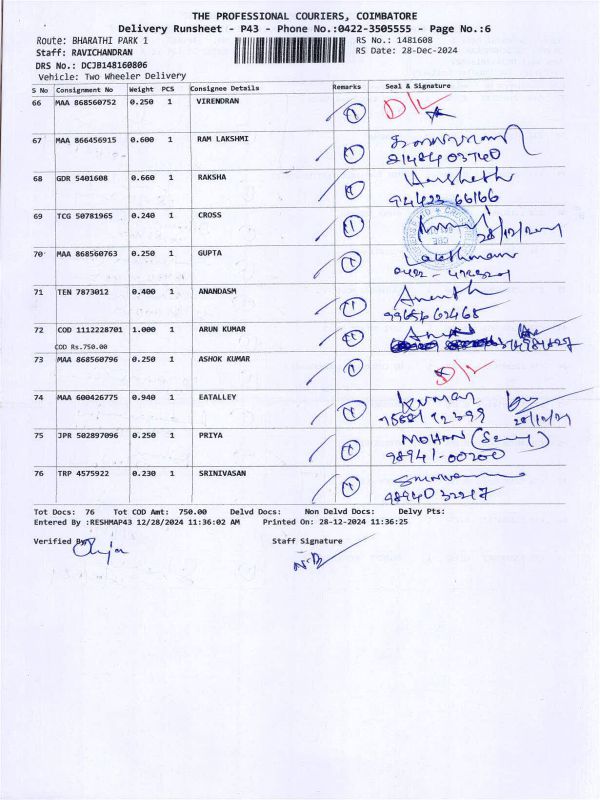 THE PROFESSIONAL COURIERS, COIMBATORE
Delivery Runsheet - P43 - Phone No.:0422-3505555 - Page No.:6
Route: BHARATHI PARK 1 RS No.: 1481608
Staff: RAVICHANDRAN RS Date: 28-Dec-2024
DRS No.: DCJB148160806
Vehicle: Two Wheeler Delivery
S No Consignment No Weight PCS Consignee Details Remarks Seal & Signature
66 MAA 868560752 0.250 1 VIRENDRAN 1 D/L
67 MAA 866456915 0.600 1 RAM LAKSHMI 1
68 GDR 5401608 0.660 1 RAKSHA 1
94423 66166
69 TCG 50781965 0.240 1 CROSS 1 28/12/2024
70 MAA 868560763 0.250 1 GUPTA 1 Lakshmanan
71 TEN 7873012 0.400 1 ANANDASM 1 Ananth
72 COD 1112228701 1.000 1 ARUN KUMAR 1
COD Rs.750.00
73 MAA 868560796 0.250 1 ASHOK KUMAR 1 D/L
74 MAA 600426775 0.940 1 EATALLEY 1 Kumar
75 JPR 502897096 0.250 1 PRIYA 1 MOHAN
98941-00200
76 TRP 4575922 0.230 1 SRINIVASAN 1
Tot Docs: 76 Tot COD Amt: 750.00 Delvd Docs: Non Delvd Docs: Delvy Pts:
Entered By :RESHMAP43 12/28/2024 11:36:02 AM Printed On: 28-12-2024 11:36:25
Verified By Staff Signature